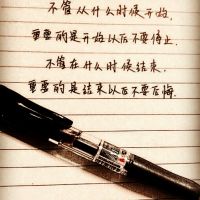 不管从什么时候开始，
重要的是开始以后不要停止。
不管在什么时候结束，
重要的是结束以后不要后悔。